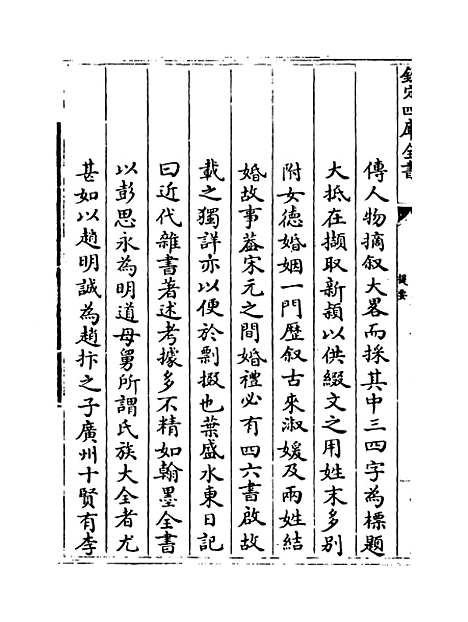 欽定四庫全書
提要
傳人物摘叙大畧而採其中三四字為標題
大抵在擷取新頴以供綴文之用姓末多别
附女徳婚姻一門歴叙古來淑媛及兩姓結
婚故事葢宋元之間婚禮必有四六書啟故
載之獨詳亦以便於剽掇也葉盛水東日記
曰近代雜書著述考據多不精如翰墨全書
以彭思永為明道母舅所謂氏族大全者尤
甚如以趙明誠為趙抃之子廣州十賢有李